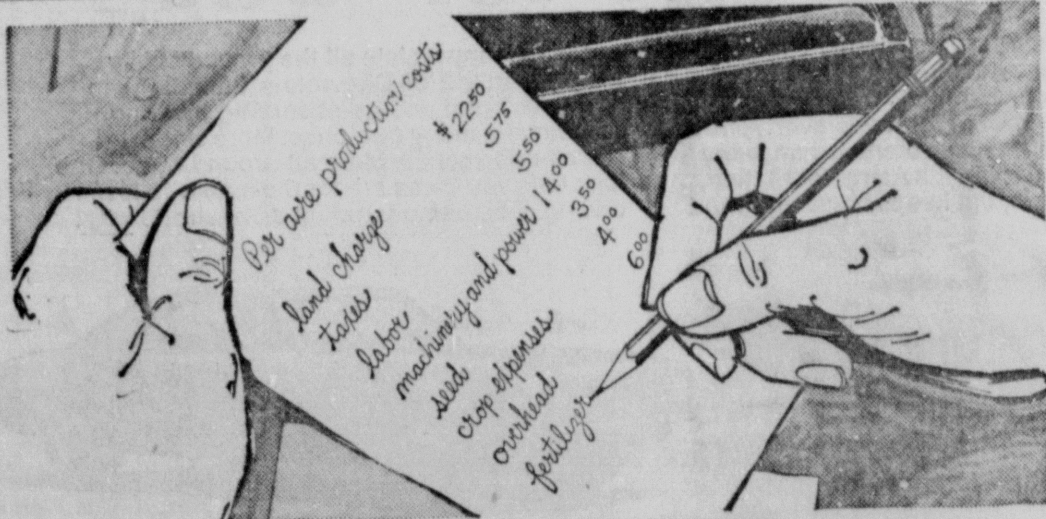 Per acre production costs
land charge $22.50
taxes 5.75
labor 5.50
machinery and power 14.00
seed 3.50
crop expenses 4.00
overhead 6.00
fertilizer